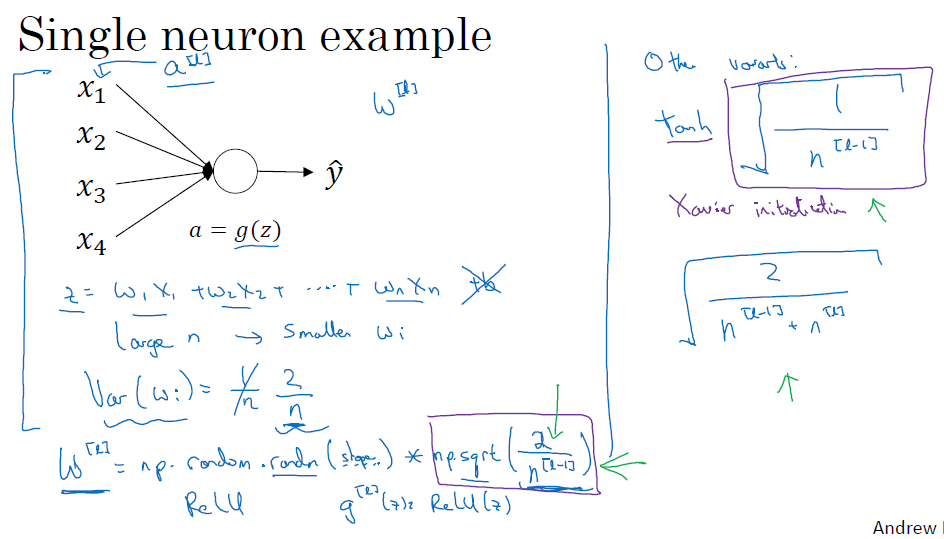 Single neuron example
a^[l]
x₁
x₂
x₃
x₄
ŷ
a = g(z)
W^[l]
z = w₁x₁ + w₂x₂ + ..... + wₙxₙ +b
Large n → Smaller wᵢ
Var(wᵢ) = 1/n 2/n
W^[l] = np.random.randn(shape) * np.sqrt(2/n^[l-1])
ReLU g^[l](z) = ReLU(z)
Other variants:
tanh √(1/n^[l-1])
Xavier initialization
√(2/(n^[l-1] + n^[l]))
Andrew